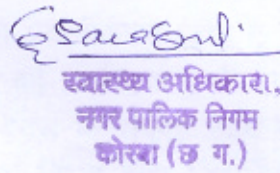 स्वास्थ्य अधिकारी,
नगर पालिक निगम
कोरबा (छ ग.)